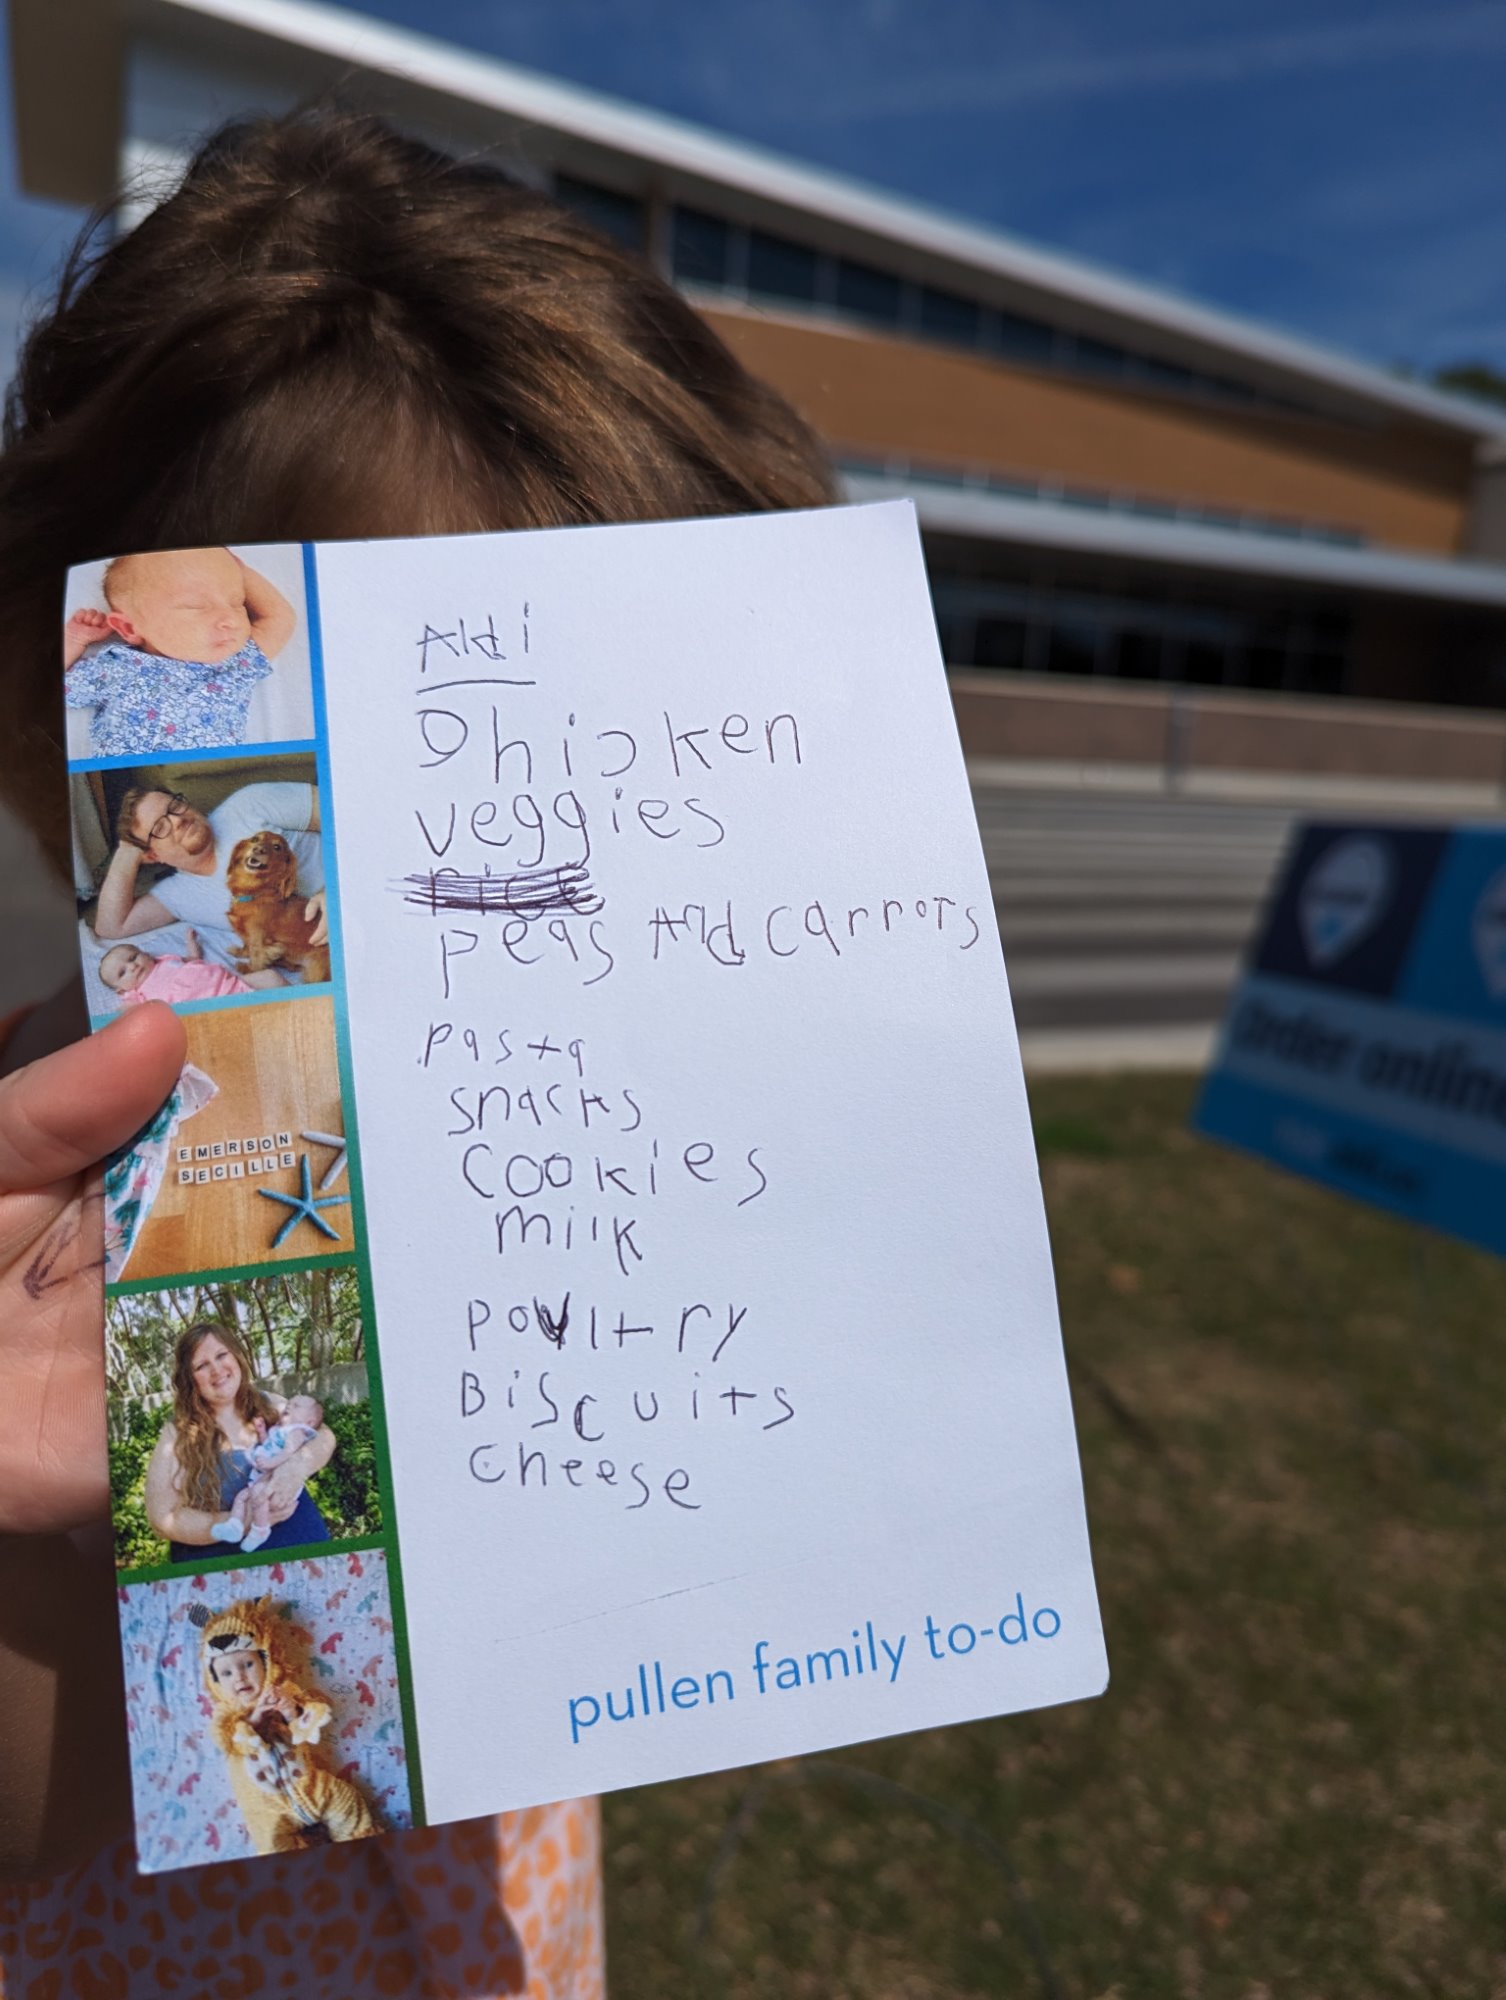 Aldi
Chicken
veggies
rice
peas And carrots
pasta
snacks
cookies
milk
poultry
Biscuits
cheese
pullen family to-do
EMERSON
SECILLE
order online